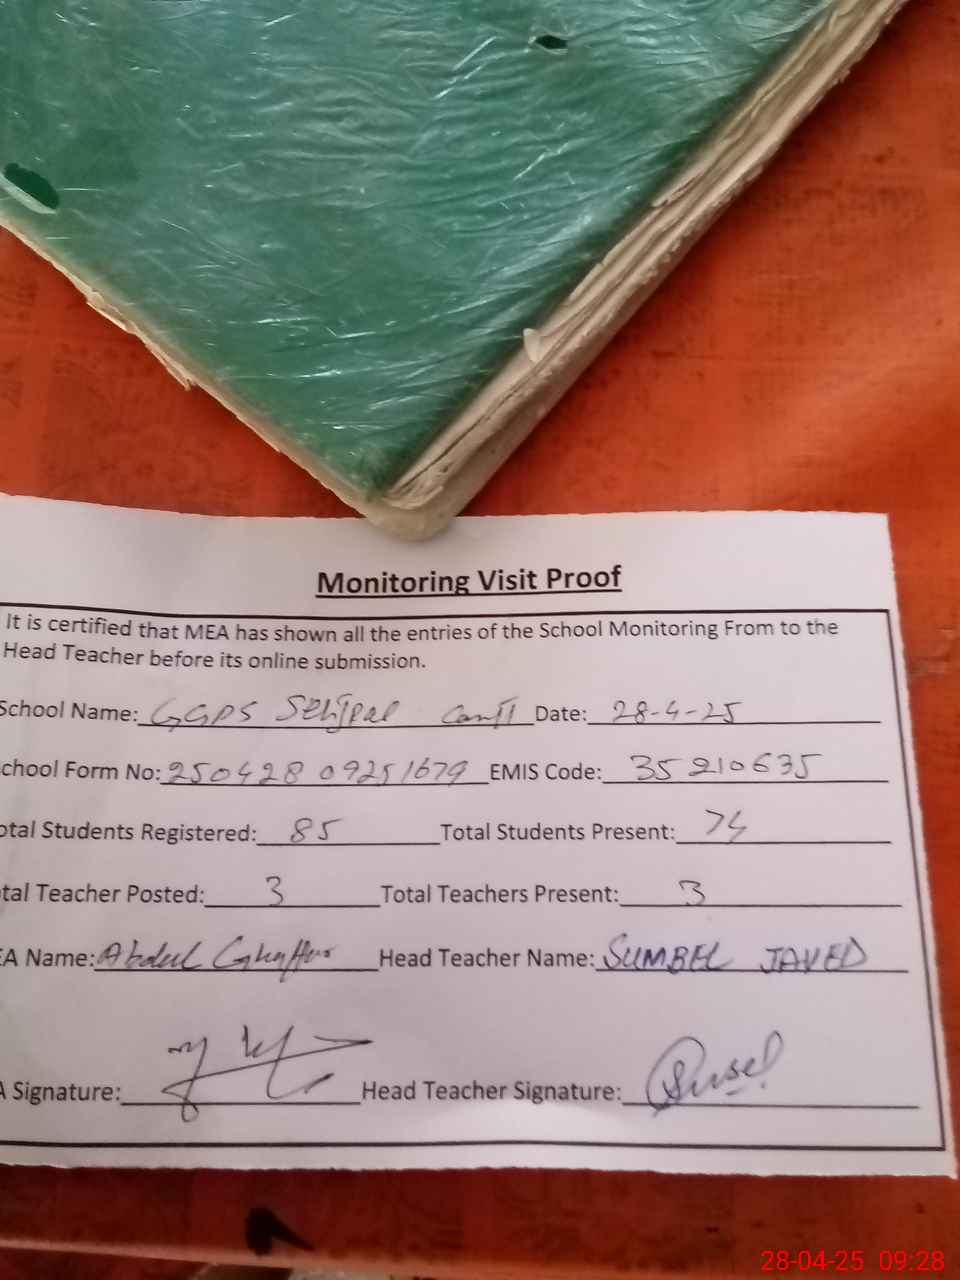 Monitoring Visit Proof
It is certified that MEA has shown all the entries of the School Monitoring From to the
Head Teacher before its online submission.
School Name: GGPS Sehjpal Cantt Date: 28-4-25
chool Form No: 250428 09251679 EMIS Code: 35210635
otal Students Registered: 85 Total Students Present: 74
tal Teacher Posted: 3 Total Teachers Present: 3
EA Name: Abdul Ghaffar Head Teacher Name: SUMBEL JAVED
A Signature: Head Teacher Signature:
28-04-25 09:28